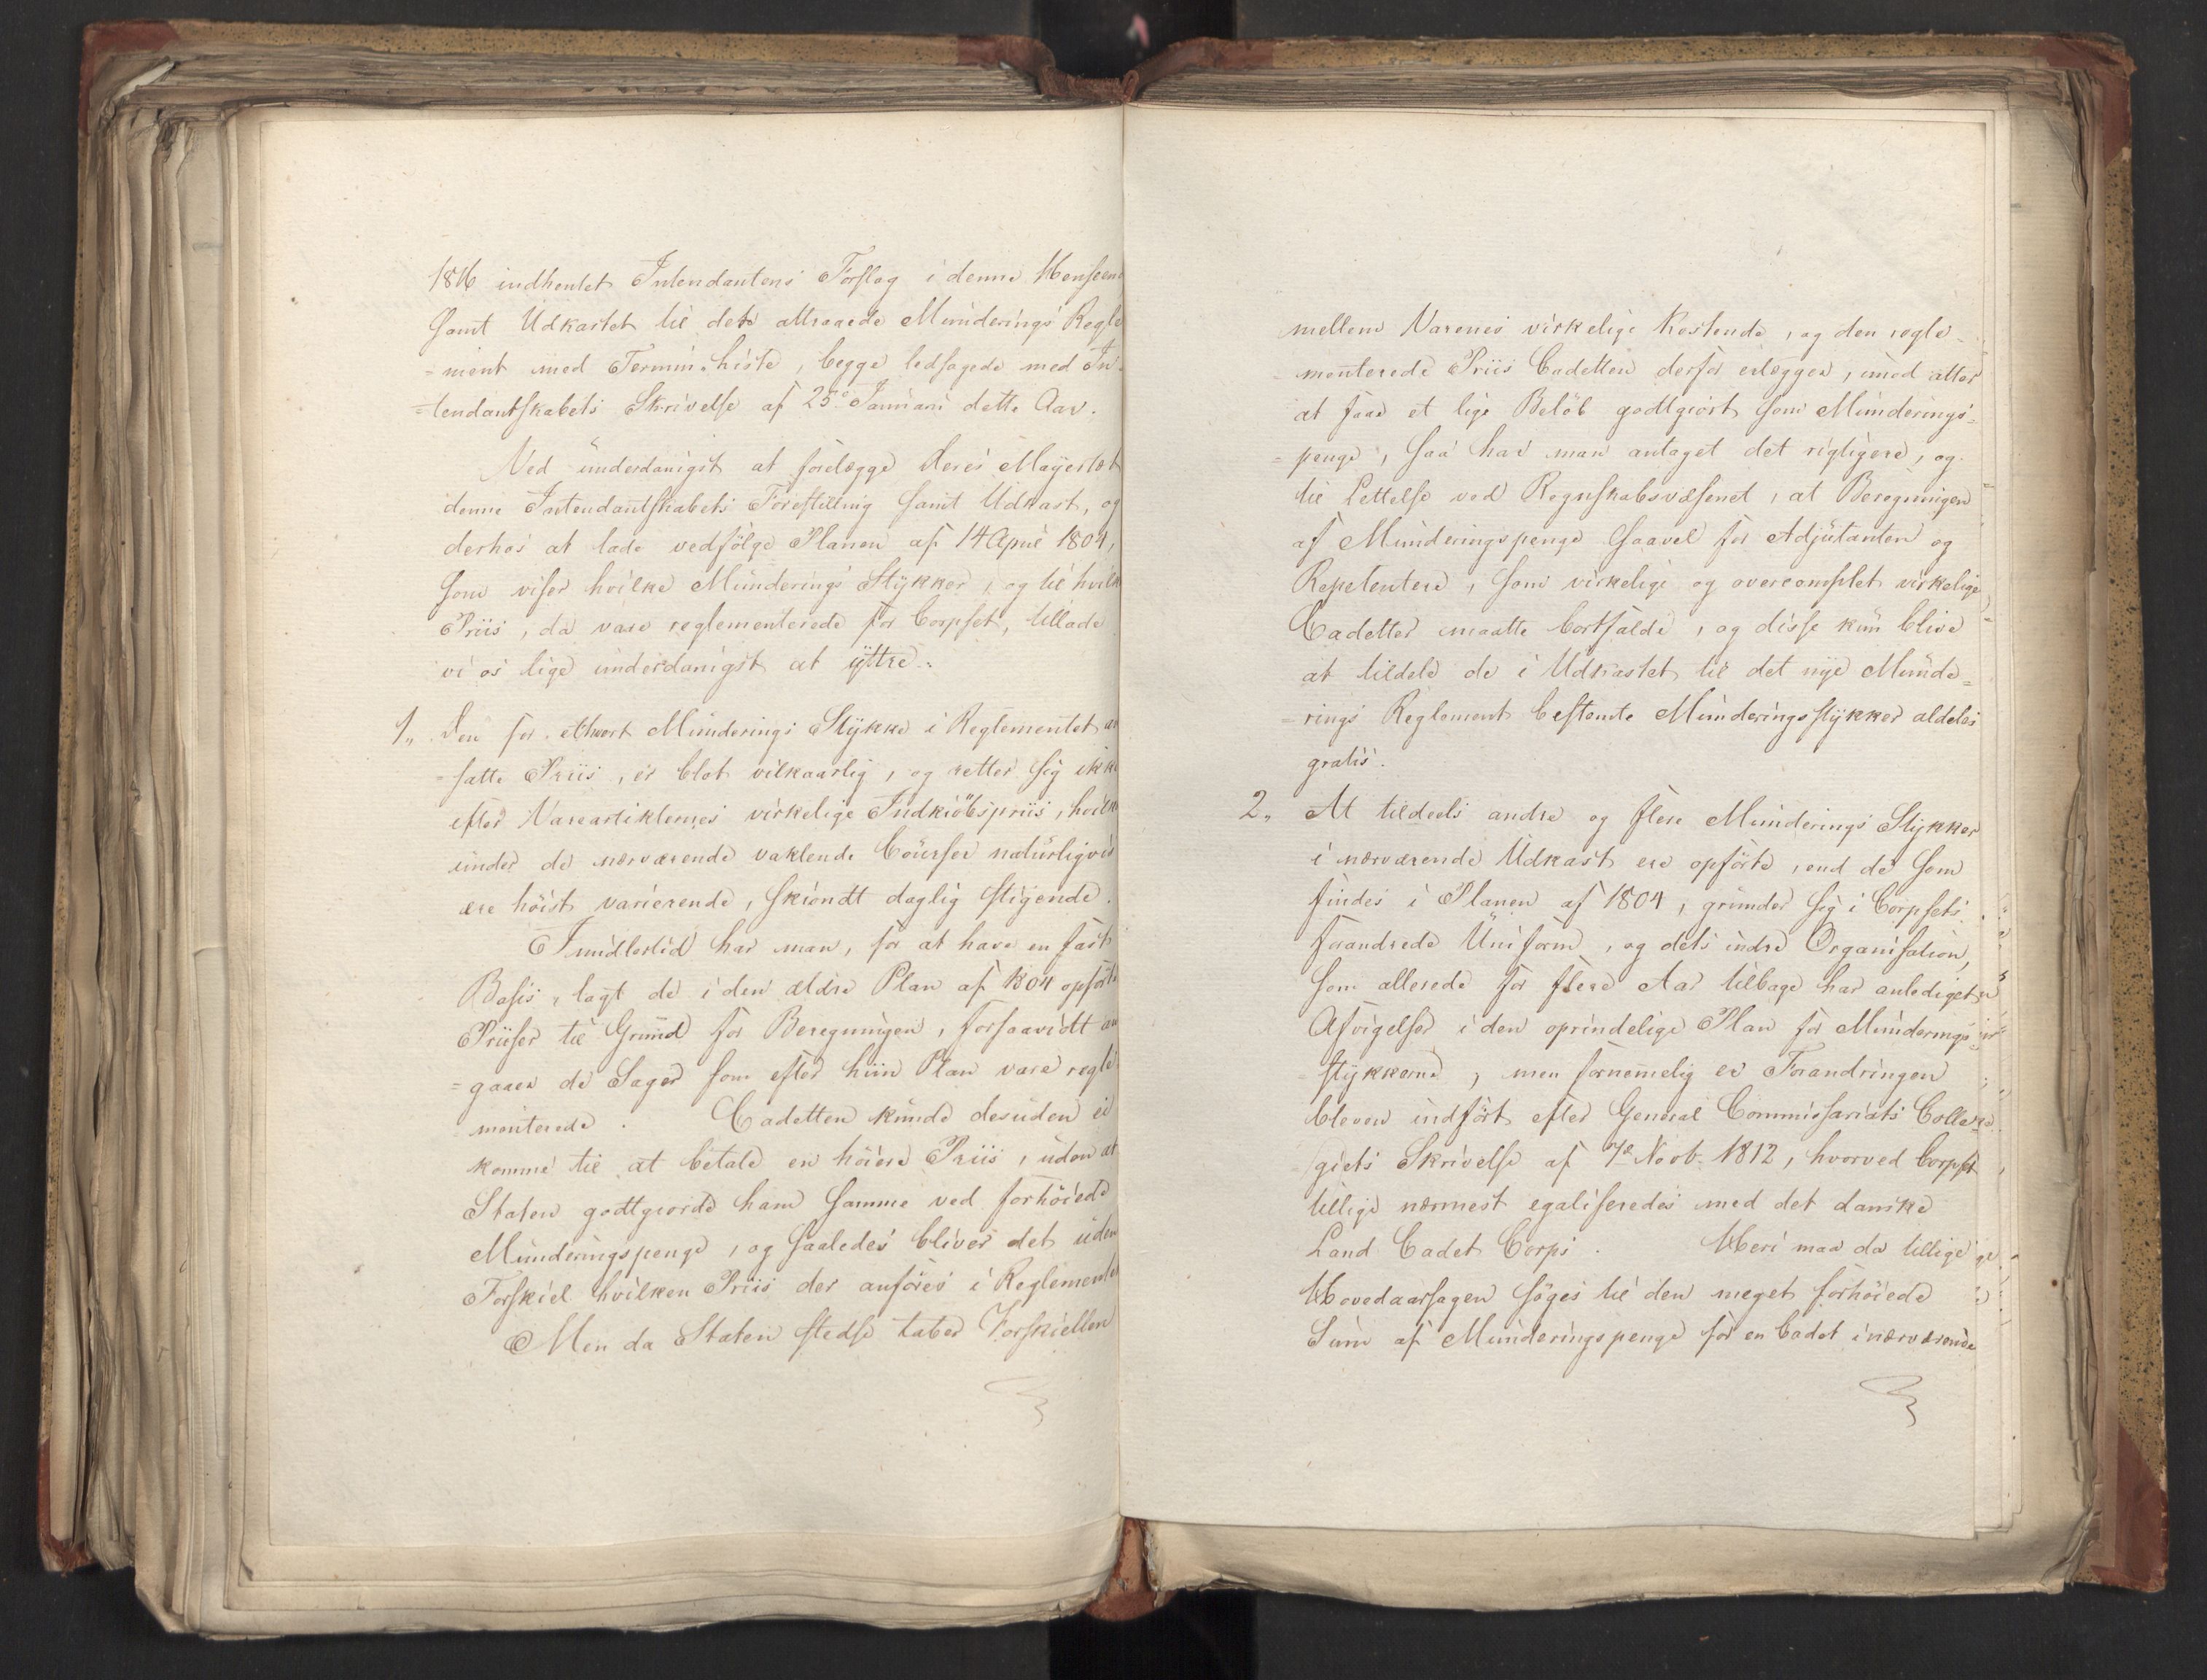 1816 indhentet Intendantens Forslag i denne Henseen
samt Udkastet til det attraaede Munderings Regle
=ment med Termin-Liste, begge ledsagede med In-
=tendantskabets Skrivelse af 25de Januari dette Aar.
Ved underdanigst at forelægge Deres Mayestæt
denne Intendantskabets Forestilling samt Udkast, og
derhos at lade vedfölge Planen af 14 April 1804,
som viser hvilke Munderings Stÿkker, og til hvilk
Priis, da vare reglementerede for Corpset, tillade
vi os lige underdanigst at ÿttre:
1., Den for ethvert Munderings Stÿkke i Reglementet an
=satte Priis, er blot vilkaarlig, og retter sig ikke
efter Vareartiklernes virkelige Indkiöbspriis, hvilke
under de nærværende vaklende Courser naturligviis
ere höist varierende, skiöndt daglig stigende.
Imidlertid har man, for at have en fast
Basis, lagt de i den ældre Plan af 1804 opförte
Priiser til Grund for Beregningen, forsaavidt an
=gaaer de Sager som efter hiin Plan vare regle
menterede. Cadetten kunde desuden ei
komme til at betale en höiere Priis, uden at
Staten godtgiorde ham samme ved forhöiede
Munderingspenge, og saaledes bliver det uden
Forskiel hvilken Priis der anföres i Reglementet
Men da Staten stedse taber Forskiellen
mellem Varenes virkelige Kostende, og den regle-
=menterede Priis Cadetten derfor erlægger, imod atter
at faae et lige Belöb godtgiört som Munderings=
=penge, saa har man antaget det rigtigere, og
til Lettelse ved Regnskabsvæsenet, at Beregningen
af Munderingspenge saavel for Adjutanten og
Repetentere, som virkelige og overcomplet virkelige
Cadetter maatte bortfalde, og disse kun blive
at tildele de i Udkastet til det nÿe Munde=
=rings Reglement bestemte Munderingsstÿkker aldeles
gratis.
2., At tildeels andre og flere Munderings Stÿkker
i nærværende Udkast ere opförte, end de som
findes i Planen af 1804, grunder sig i Corpsets
forandrede Uniform, og dets indre Organisation,
som allerede for flere Aar tilbage har anlediget
Afvigelser i den oprindelige Plan for Munderings
=stÿkkerne, men fornemelig er Forandringen
bleven indfört efter General Commissariats Colle=
giets Skrivelse af 7de Novb. 1812, hvorved Corpset
tillige nærmest egaliseredes med det danske
Land Cadet Corps. Heri maa da tillige
Hovedaarsagen söges til den meget forhöiede
Sum af Munderingspenge for en Cadet i nærværende